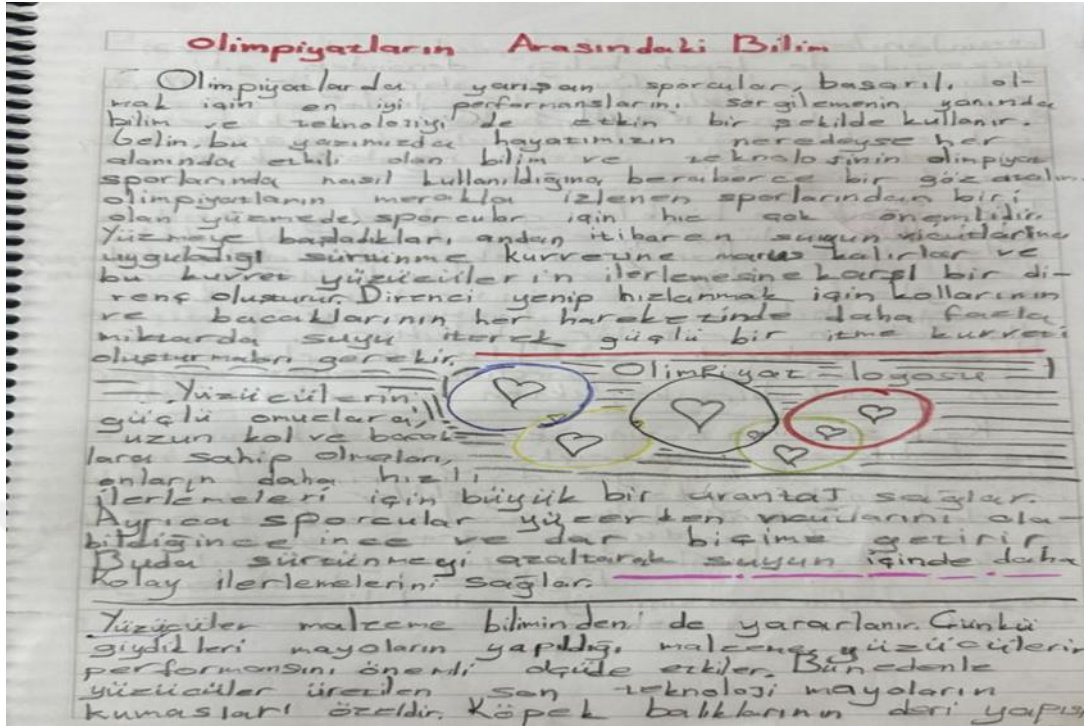 Olimpiyatların Arasındaki Bilim
Olimpiyatlarda yarışan sporcular, başarılı ol-
mak için en iyi performanslarını sergilemenin yanında
bilim ve teknolojiyi de etkin bir şekilde kullanır.
Gelin, bu yazımızda hayatımızın neredeyse her
alanında etkili olan bilim ve teknolojinin olimpiyat
sporlarında nasıl kullanıldığına beraberce bir göz atalım.
olimpiyatların merakla izlenen sporlarından biri
olan yüzmede, sporcular için hız çok önemlidir.
Yüzmeye başladıkları andan itibaren suyun vücutlarına
uyguladığı sürtünme kuvvetine maruz kalırlar ve
bu kuvvet yüzücülerin ilerlemesine karşı bir di-
renç oluşturur. Direnci yenip hızlanmak için kollarının
ve bacaklarının her hareketinde daha fazla
miktarda suyu iterek güçlü bir itme kuvveti
oluşturmaları gerekir.
Olimpiyat logosu
Yüzücülerin
güçlü omuzlara,
uzun kol ve bacak
lara sahip olmaları,
onların daha hızlı
ilerlemeleri için büyük bir avantaj sağlar.
Ayrıca sporcular yüzerken vücutlarını ola-
bildiğince ince ve dar biçime getirir
Buda sürtünmeyi azaltarak suyun içinde daha
kolay ilerlemelerini sağlar.
Yüzücüler malzeme biliminden de yararlanır. Çünkü
giydikleri mayoların yapıldığı malzeme yüzücülerin
performansını önemli ölçüde etkiler. Bu nedenle
yüzücüler üretilen son teknoloji mayoların
kumaşları özeldir. Köpek balıklarının deri yapısı